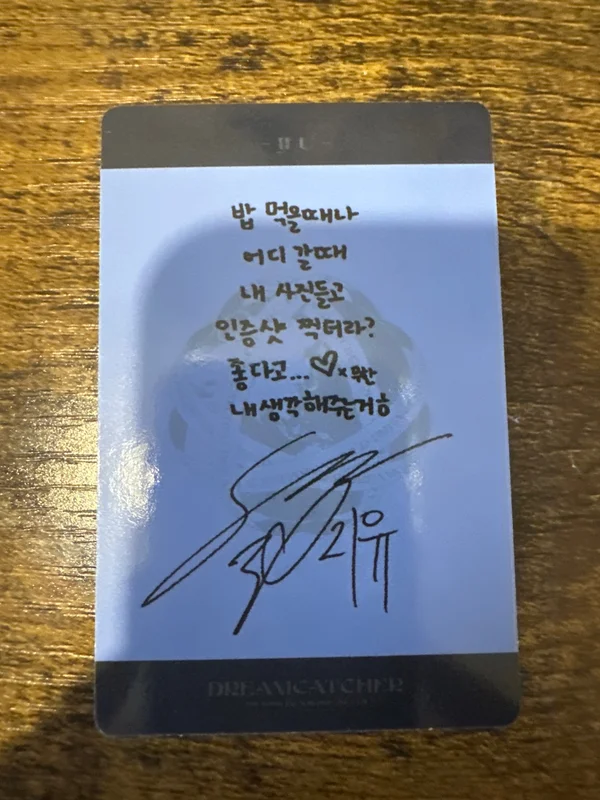 밥 먹을때나
어디 갈때
내 사진들고
인증샷 찍더라?
좋다고...♡×무한
내생각해주는거ㅎ
리유
DREAMCATCHER